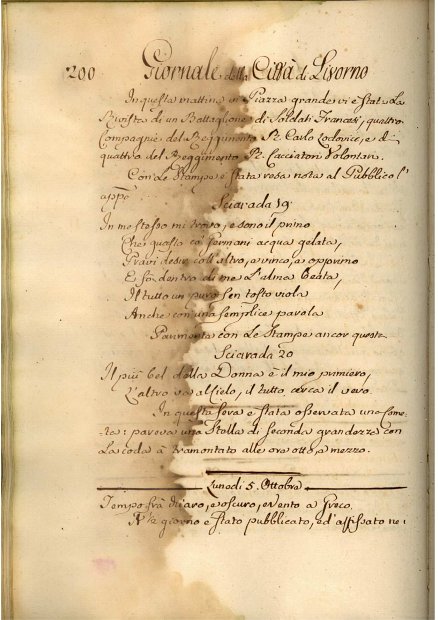 200 Giornale della Città di Livorno
In questa mattina in Piazza grande vi è stata la
Rivista di un Battaglione di Soldati Francesi, quattro
Compagnie del Reggimento Rl. Carlo Lodovico, e di
quattro del Reggimento Rl. Cacciatori Volontari.
Con Le Stampe è stata resa nota al Pubblico l'
appõ
Sciarada 19.
In me stesso mi trovo, e sono il primo
Che questa co' sermoni acqua gelata,
Gravi desir coll'altro, e vinco, e opprimo
E fò dentro di me L'alma beata,
Il tutto un puro sen tosto viola
Anche con una semplice parola
Parimente con Le Stampe ancor questa
Sciarada 20
Il più bel della Donna è il mio primiero,
L'altro va al Cielo, il tutto cerca il vero.
In questa sera è stata osservata una Come-
ta: pareva una Stella di seconda grandezza con
La coda à tramontato alle ore otto, e mezzo.
Lunedì 5. Ottobre
Tempo frà chiaro, e oscuro, e vento a Greco.
giorno è stato pubblicato, ed' affissato ne i